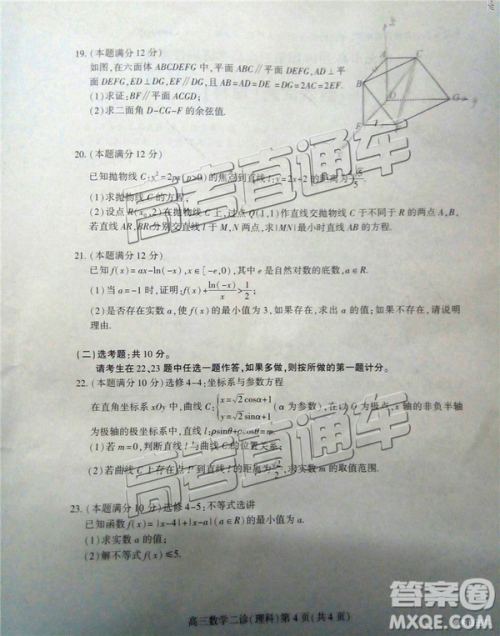 19. (本题满分 12 分)
如图,在六面体 ABCDEFG 中,平面 ABC∥平面 DEFG,AD⊥平
面 DEFG,ED⊥DG,EF∥DG,且 AB=AD=DE=DG=2AC=2EF.
(1)求证:BF∥平面 ACGD;
(2)求二面角 D-CG-F 的余弦值.
A
C
B
D
G
E
F
20. (本题满分 12 分)
已知抛物线 C:x²=2py(p>0)的焦点到直线 l:y=2x+2 的距离为
(1)求抛物线 C 的方程;
(2)设点 R(x₀,2)在抛物线 C 上,过点 Q(1,1)作直线交抛物线 C 于不同于 R 的两点 A,B,
若直线 AR,BR 分别交直线 l 于 M,N 两点,求|MN|最小时直线 AB 的方程.
21. (本题满分 12 分)
已知 f(x)=ax-ln(-x),x∈[-e,0),其中 e 是自然对数的底数,a∈R.
(1)当 a=-1 时,证明:f(x)+ln(-x)/x>1/2;
(2)是否存在实数 a,使 f(x)的最小值为 3,如果存在,求出 a 的值;如果不存在,请说明
理由.
(二)选考题:共 10 分。
请考生在 22、23 题中任选一题作答,如果多做,则按所做的第一题计分。
22. (本题满分 10 分)选修 4-4:坐标系与参数方程
在直角坐标系 xOy 中,曲线 C:{x=√2cosα+1 y=√2sinα+1 (α 为参数),在以 O 为极点,x 轴的非负半轴
为极轴的极坐标中,直线 l:ρsinθ+ρcosθ=m.
(1)若 m=0,判断直线 l 与曲线 C 的位置关系;
(2)若曲线 C 上存在点 P 到直线 l 的距离为 √2/2,求实数 m 的取值范围.
23. (本题满分 10 分)选修 4-5:不等式选讲
已知函数 f(x)=|x-4|+|x-a|(a∈R)的最小值为 a.
(1)求实数 a 的值;
(2)解不等式 f(x)≤5.
高三数学二诊(理科)第 4 页(共 4 页)
高考直通车
高考直通车
答案圈